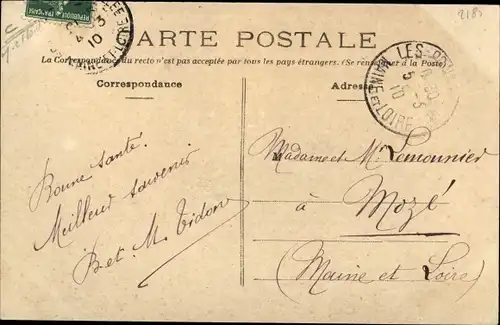 2185
RÉPUBLIQUE FRANÇAISE
4 - 3
10
CARTE POSTALE
La Correspondance du recto n'est pas acceptée par tous les pays étrangers. (Se renseigner à la Poste)
Correspondance
Adresse
LES-
5 - 3
10
MAINE ET LOIRE
Bonne santé.
Meilleur souvenir
B et M. Tidon
Madame et Mr Lemonnier
à
Mozé
(Maine et Loire)